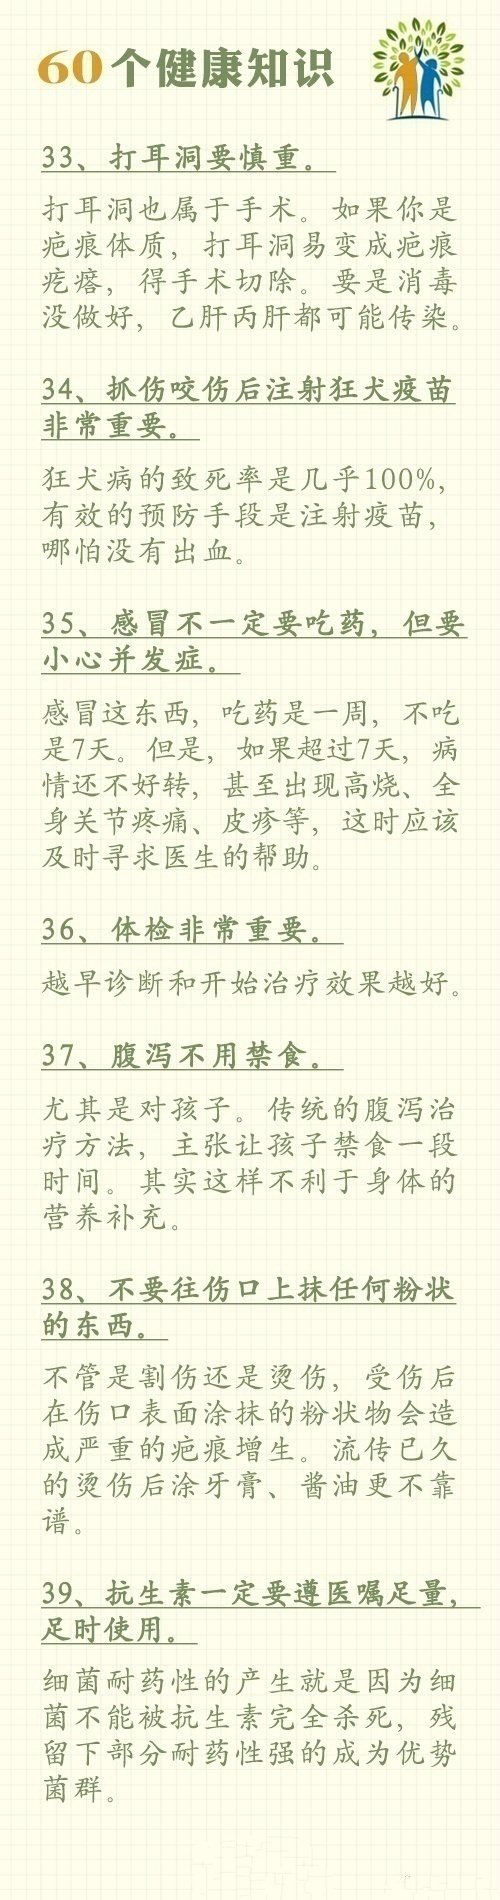 60个健康知识
33、打耳洞要慎重。
打耳洞也属于手术。如果你是
疤痕体质，打耳洞易变成疤痕
疙瘩，得手术切除。要是消毒
没做好，乙肝丙肝都可能传染。
34、抓伤咬伤后注射狂犬疫苗
非常重要。
狂犬病的致死率是几乎100%，
有效的预防手段是注射疫苗，
哪怕没有出血。
35、感冒不一定要吃药，但要
小心并发症。
感冒这东西，吃药是一周，不吃
是7天。但是，如果超过7天，病
情还不好转，甚至出现高烧、全
身关节疼痛、皮疹等，这时应该
及时寻求医生的帮助。
36、体检非常重要。
越早诊断和开始治疗效果越好。
37、腹泻不用禁食。
尤其是对孩子。传统的腹泻治
疗方法，主张让孩子禁食一段
时间。其实这样不利于身体的
营养补充。
38、不要往伤口上抹任何粉状
的东西。
不管是割伤还是烫伤，受伤后
在伤口表面涂抹的粉状物会造
成严重的疤痕增生。流传已久
的烫伤后涂牙膏、酱油更不靠
谱。
39、抗生素一定要遵医嘱足量，
足时使用。
细菌耐药性的产生就是因为细
菌不能被抗生素完全杀死，残
留下部分耐药性强的成为优势
菌群。